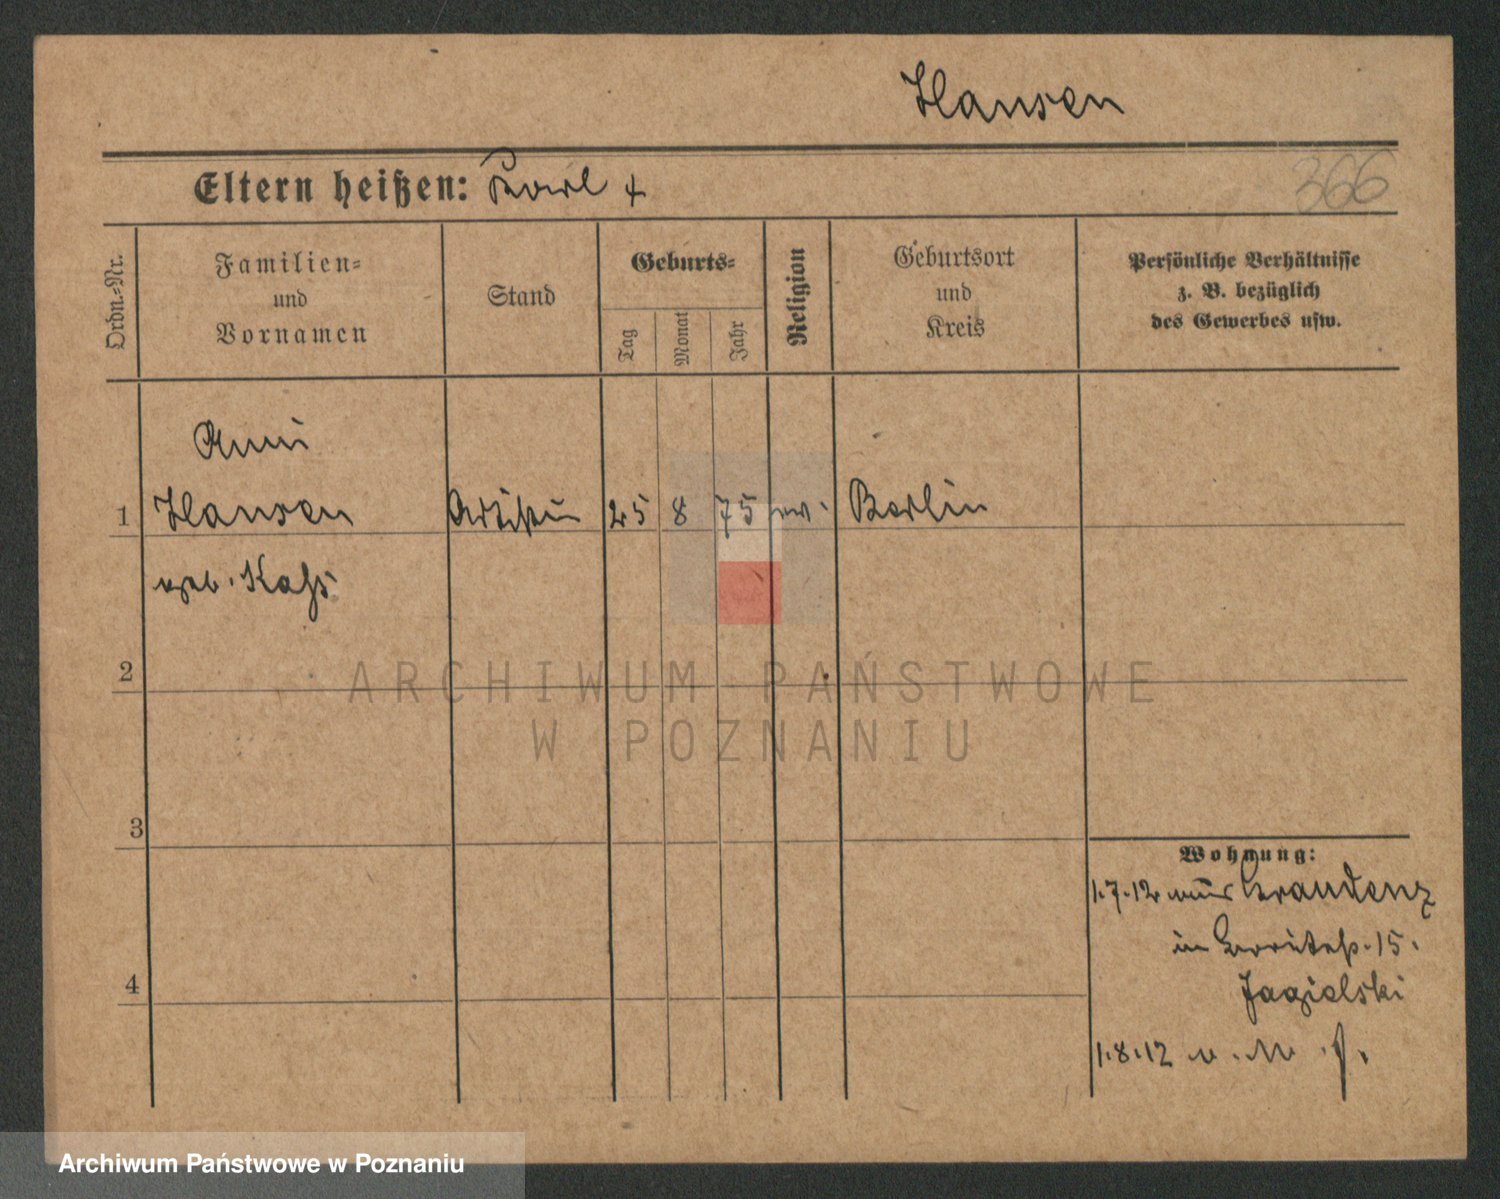 Hansen
Eltern heißen: Karl +
366
Ordn.-Nr.
Familien- und Vornamen
Stand
Geburts-
Tag
Monat
Jahr
Religion
Geburtsort und Kreis
Persönliche Verhältnisse z. B. bezüglich des Gewerbes usw.
Anni
1 Hansen Artistin 25 8 75 ev. Berlin
geb.
2
ARCHIWUM PAŃSTWOWE
W POZNANIU
3
Wohnung:
1.7.12 aus Graudenz
in 15.
Jagielski
4
1.8.12
Archiwum Państwowe w Poznaniu